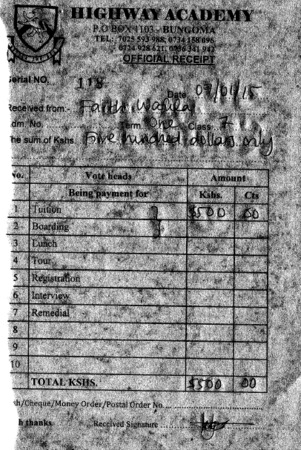 HIGHWAY ACADEMY
P.O BOX 1103 - BUNGOMA
OFFICIAL RECEIPT
Serial NO. 118
Date 09/01/15
Received from:- Faith
Adm. No. Term One Class 7
The sum of Kshs Five hundred dollars only
No. Vote heads Amount
Being payment for Kshs. Cts
1 Tuition $500 00
2 Boarding
3 Lunch
4 Tour
5 Registration
6 Interview
7 Remedial
8
9
10
TOTAL KSHS. $500 00
sh/Cheque/Money Order/Postal Order No.
h thanks Received Signature